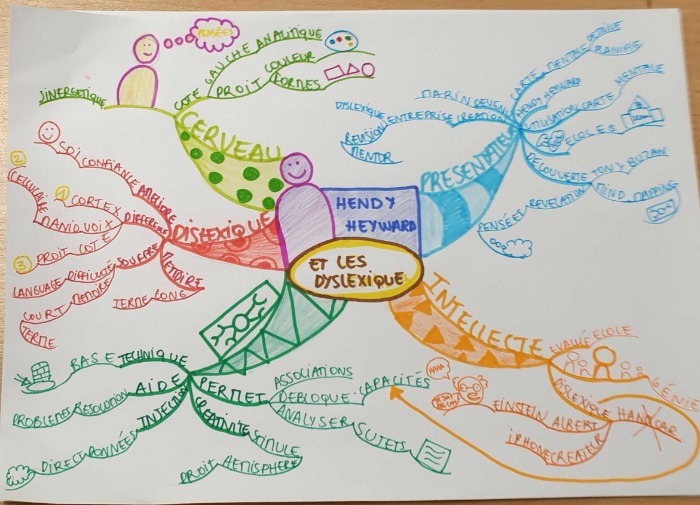 HENDY
HEYWARD
ET LES
DYSLEXIQUE
CERVEAU
JINERGETIQUE
PENSÉES
COTE
GAUCHE ANALYTIQUE
DROIT
COULEUR
FORMES
PRESENTATEUR
MARIN DEVENU
DYSLEXIQUE
ENTREPRISE CREATION
REUSION
MENTOR
CARTE MENTALE
PLANIFIE
HENDY HEYWARD
UTILISATION CARTE MENTALE
ECOLES
DECOUVERTE TONY BUZAN
MIND MAPPING
PENSÉE ET REVELATION
INTELLECTE
EVALUÉ ECOLE
GÉNIE
DISLEXIQUE HANDICAP
EINSTEIN ALBERT
IPHONE CREATEUR
DISLEXIQUE
AMELIORE
CONFIANCE
SOI
DIFFERENT
1 CORTEX
2
CELLULAIRE
3
DROIT COTÉ
SOUFFRE
DIFFICULTÉ
LANGUAGE
MEMOIRE
COURT
TERME
MEMOIRE
TERME LONG
BASE TECHNIQUE
AIDE
PROBLEMES RESOLUTION
INJECTION
DIRECT DONNÉES
PERMET
ASSOCIATIONS
DEBLOQUE CAPACITÉS
ANALYSER SUJETS
CREATIVITÉ STIMULE
DROIT HEMISPHERE